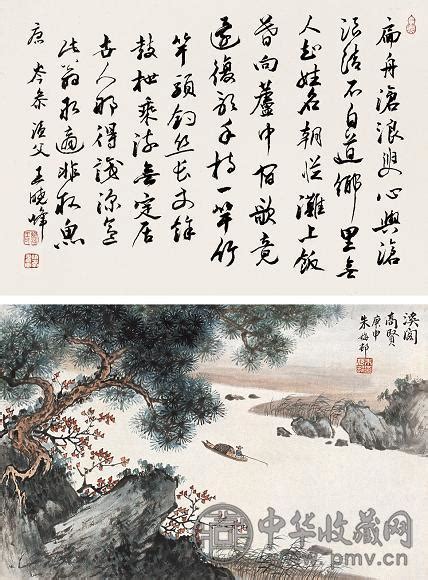 扁舟滄浪叟心與滄
浪清不自道鄉里無
人知姓名朝從灘上飯
暮向蘆中宿歌竟
還復歌手持一竿竹
竿頭釣絲長丈餘
鼓枻乘流無定居
世人那得識深意
此翁取適非取魚
唐岑參漁父王曉峰
溪
高賢
庚申
朱梅邨
中华收藏网
www.pmv.cn